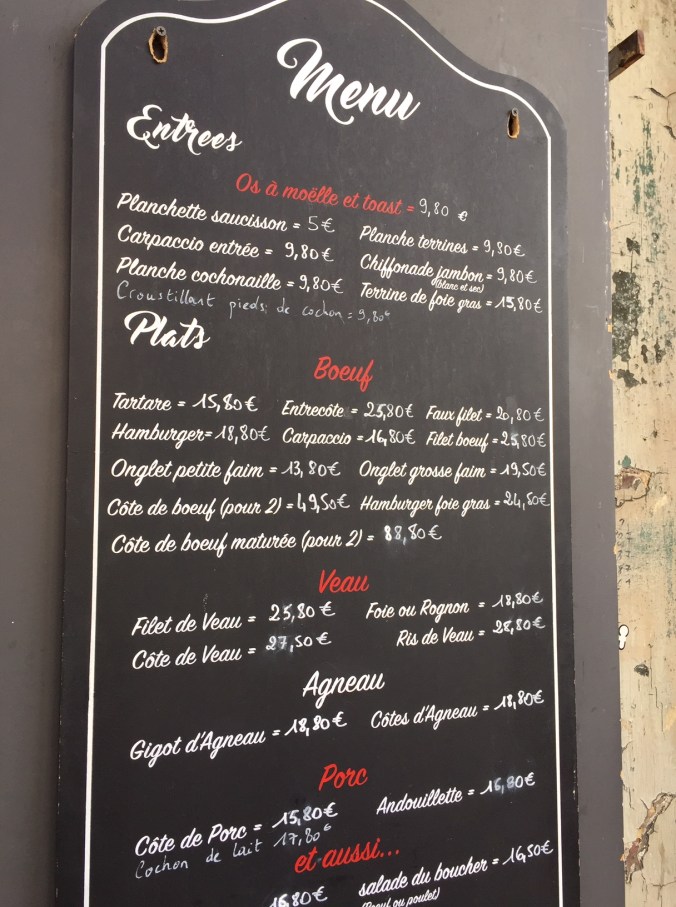 Menu
Entrees
Os à moëlle et toast = 9,80 €
Planchette saucisson = 5€ Planche terrines = 9,80€
Carpaccio entrée = 9,80€ Chiffonade jambon = 9,80€
(blanc et sec)
Planche cochonaille = 9,80€ Terrine de foie gras = 15,80€
Croustillant pieds de cochon = 9,80€
Plats
Boeuf
Tartare = 15,80€ Entrecôte = 25,80€ Faux filet = 20,80€
Hamburger = 18,80€ Carpaccio = 16,80€ Filet boeuf = 25,80€
Onglet petite faim = 13,80€ Onglet grosse faim = 19,50€
Côte de boeuf (pour 2) = 49,50€ Hamburger foie gras = 24,80€
Côte de boeuf maturée (pour 2) = 88,80€
Veau
Filet de Veau = 25,80€ Foie ou Rognon = 18,80€
Côte de Veau = 27,50€ Ris de Veau = 28,80€
Agneau
Gigot d'Agneau = 18,80€ Côtes d'Agneau = 18,80€
Porc
Côte de Porc = 15,80€ Andouillette = 16,80€
Cochon de lait 17,80€
et aussi...
16,80€ salade du boucher = 16,50€
(Boeuf ou poulet)